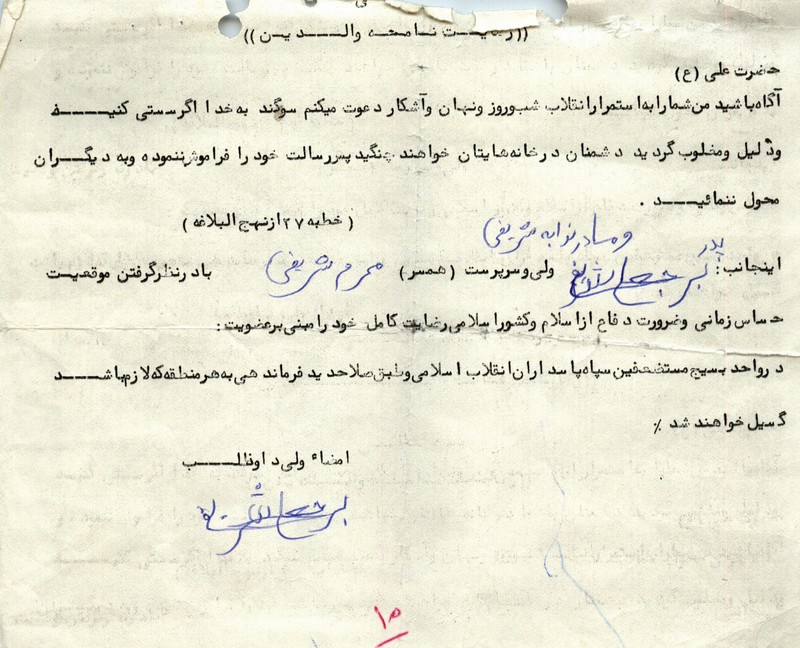 ((رضایت نامه والدین))
حضرت علی (ع)
آگاه باشید من شما را به استمرار انقلاب شب و روز و نهان و آشکار دعوت میکنم سوگند به خدا اگر سستی کنید
و ذلیل و مغلوب گردید دشمنان در خانه هایتان خواهند جنگید پس رسالت خود را فراموش ننموده و به دیگران
محول ننمائید.
(خطبه ۲۷ از نهج البلاغه)
پدر و مادر شریفی
اینجانب: شریفی ولی و سرپرست (همسر) محرم شریفی با در نظر گرفتن موقعیت
حساس زمانی و ضرورت دفاع از اسلام و کشور اسلامی رضایت کامل خود را مبنی بر عضویت:
در واحد بسیج مستضعفین سپاه پاسداران انقلاب اسلامی و طبق صلاحدید فرماندهی به هر منطقه که لازم باشد
گسیل خواهند شد ٪
امضاء ولی داوطلب
۱۰